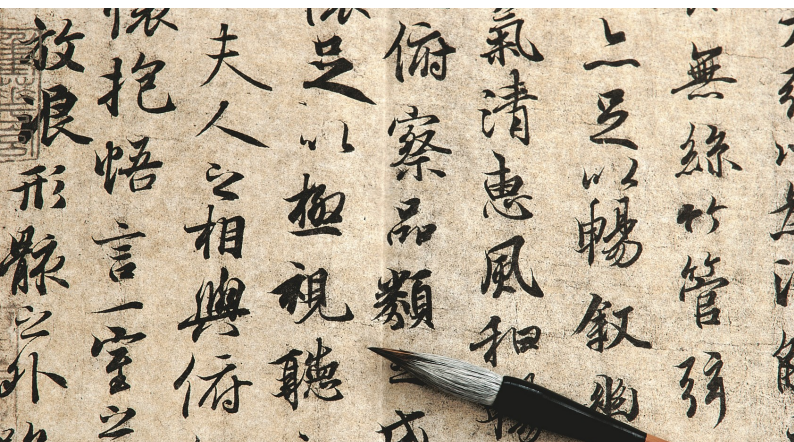 無絲竹管弦
亦足以暢叙幽
氣清惠風和
俯察品類
足以極視聽
夫人之相與俯
懷抱悟言一室之
放浪形骸之外